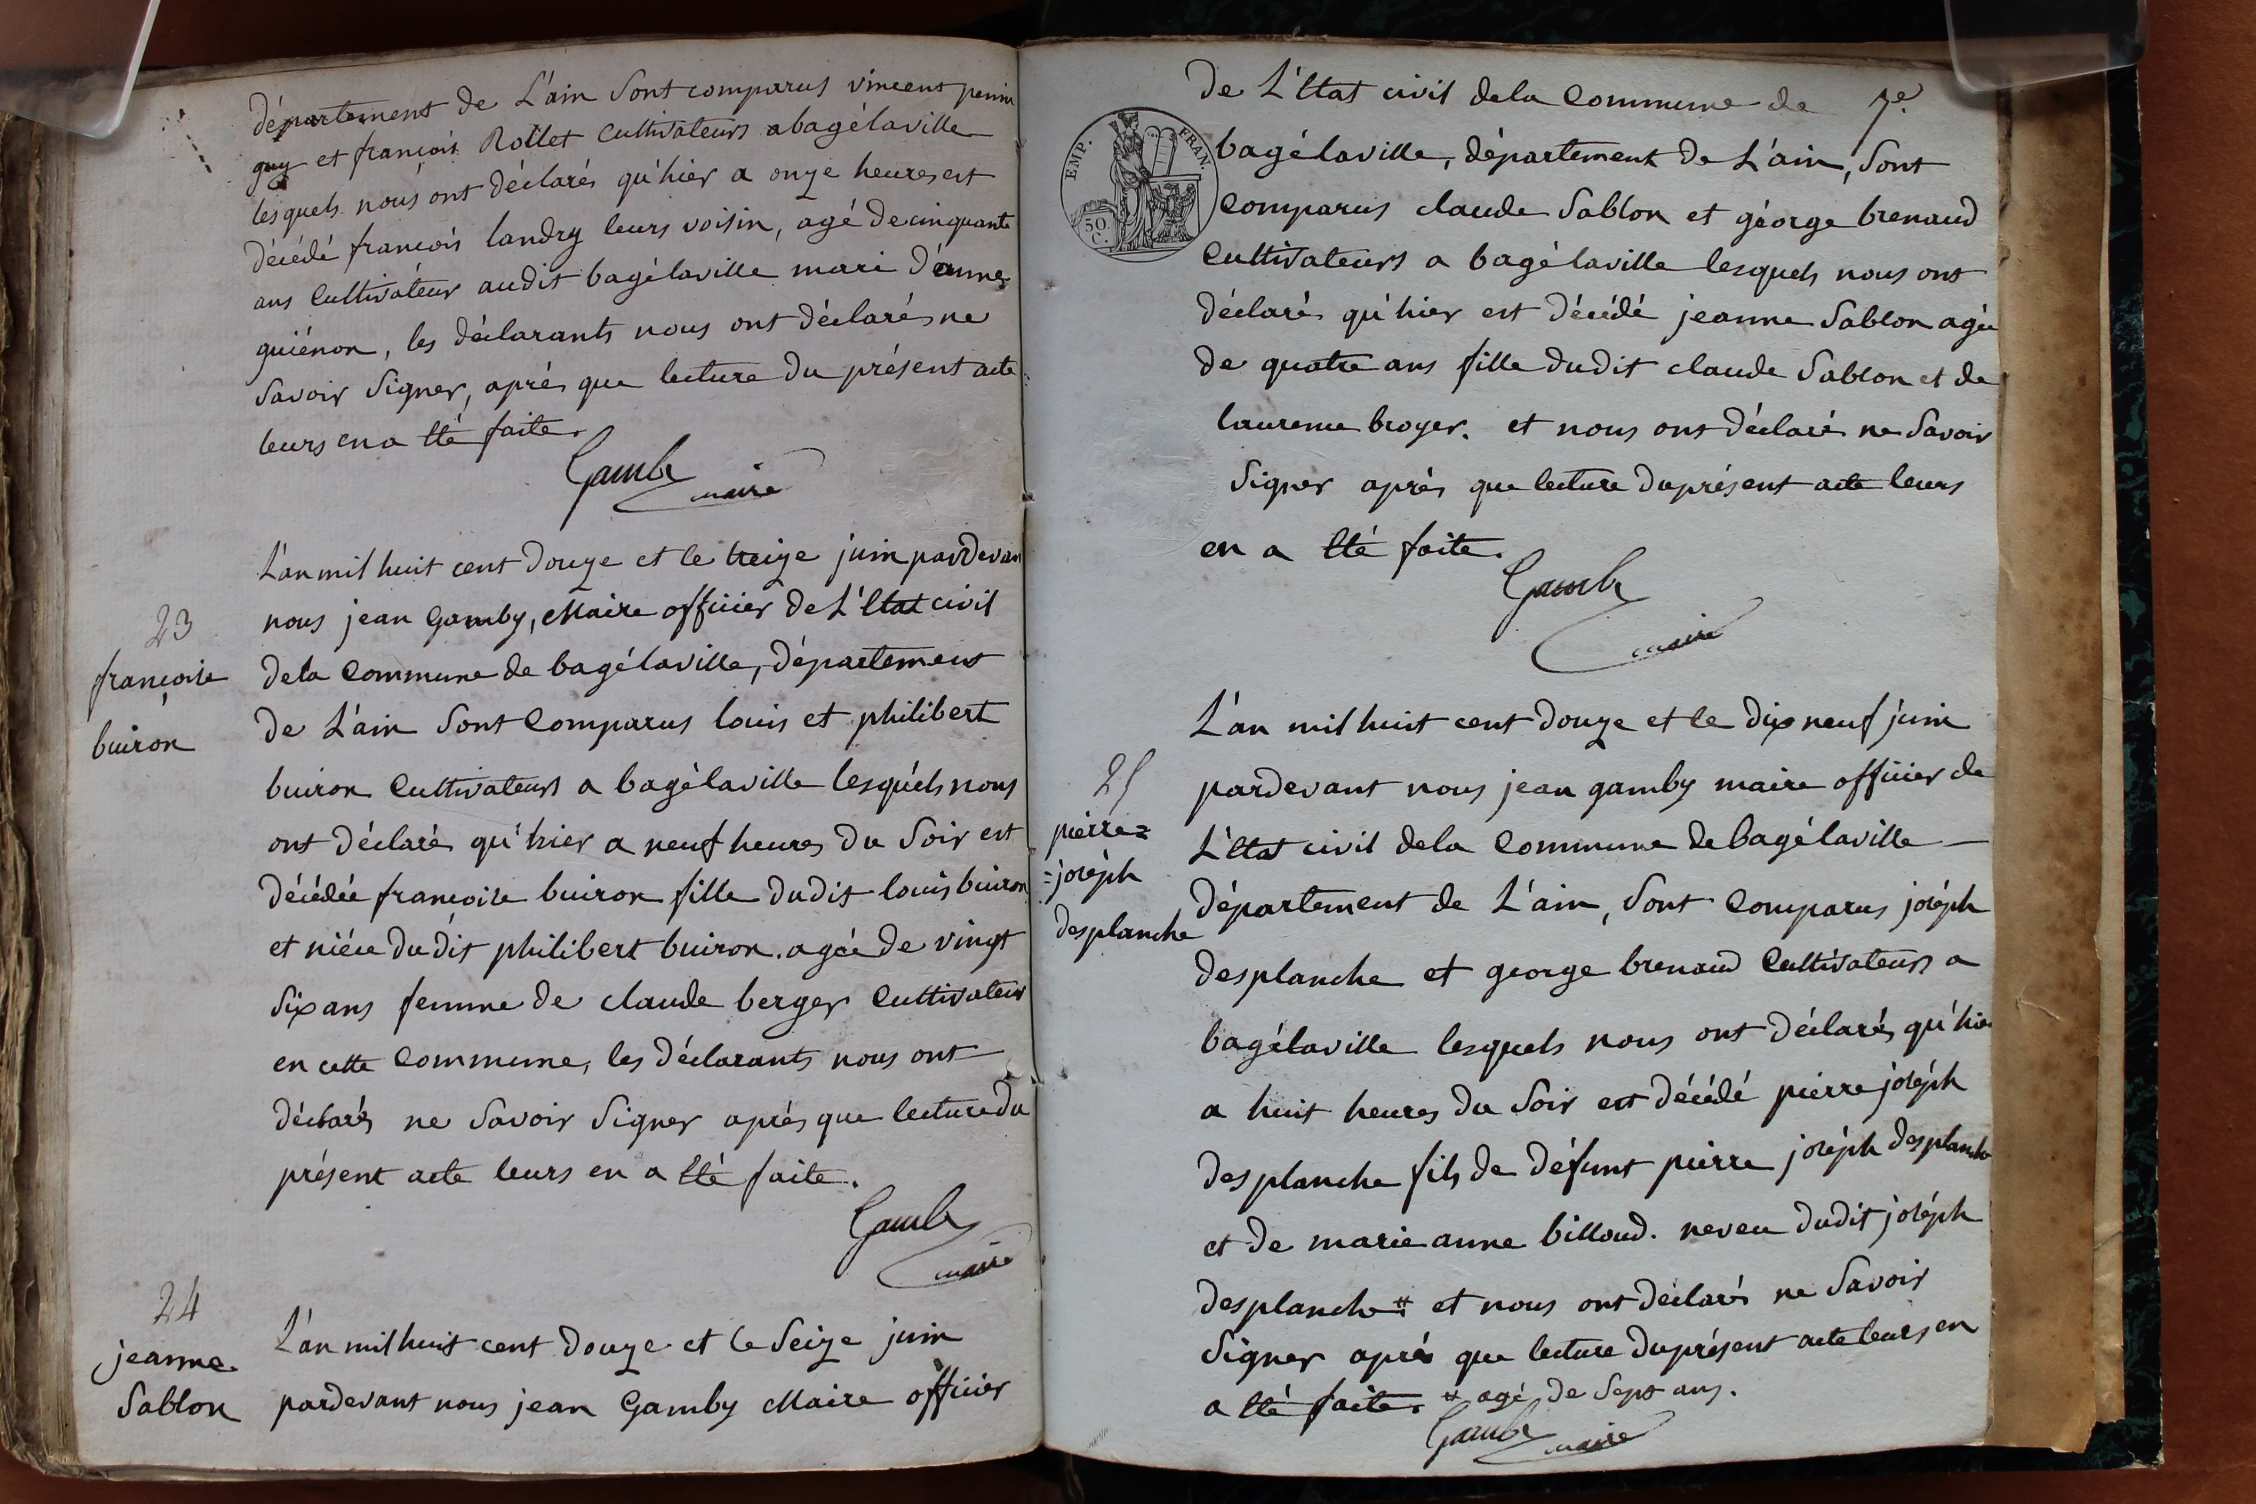 département de L'ain Sont comparus vincent penin
guy et françois Rollet cultivateurs a bagélaville
lesquels nous ont déclarés qu'hier a onze heures est
décédé françois landry leurs voisin, agé de cinquante
ans Cultivateur audit bagélaville mari d'anne
guiénon, les déclarants nous ont déclarés ne
Savoir Signer, après que lecture du présent acte
leurs en a été faite.
Gamby
maire
L'an mil huit cent douze et le treize juin pardevan
23
nous jean Gamby, Maire officier de L'Etat civil
françoise
dela Commune de bagélaville, département
buiron
de L'ain Sont Comparus louis et philibert
buiron Cultivateurs a bagélaville lesquels nous
ont déclarés qu'hier a neuf heures du Soir est
décédée françoise buiron fille dudit louis buiron
et niéce dudit philibert buiron. agée de vingt
Six ans femme de claude berger Cultivateur
en cette Commune, les déclarants nous ont
déclarés ne Savoir Signer après que lecture du
présent acte leurs en a été faite.
Gamby
maire
24
jeanne
Sablon
L'an mil huit cent douze et le Seize juin
pardevant nous jean Gamby Maire officier
7e.
de L'Etat civil dela Commune de
EMP. FRAN.
50. C.
bagélaville, département de L'ain, Sont
Comparus claude Sablon et géorge brenaud
Cultivateurs a bagélaville lesquels nous ont
déclarés qu'hier est décédé jeanne Sablon agée
de quatre ans fille dudit claude Sablon et de
laurence broyer. et nous ont déclaré ne Savoir
Signer après que lecture du présent acte leurs
en a été faite.
Gamby
maire
L'an mil huit cent douze et le dix neuf juin
25
pardevant nous jean gamby maire officier de
pierre=
L'Etat civil dela Commune de bagélaville —
=joséph
département de L'ain, Sont Comparus joséph
desplanche
desplanche et george brenaud Cultivateurs a
bagélaville lesquels nous ont déclarés qu'hier
a huit heures du Soir est décédé pierre joséph
desplanche fils de défunt pierre joséph desplanche
et de marie anne billoud. neveu dudit joséph
desplanche # et nous ont déclarés ne Savoir
Signer après que lecture du présent acte leurs en
a été faite. # agé de Sept ans.
Gamby maire